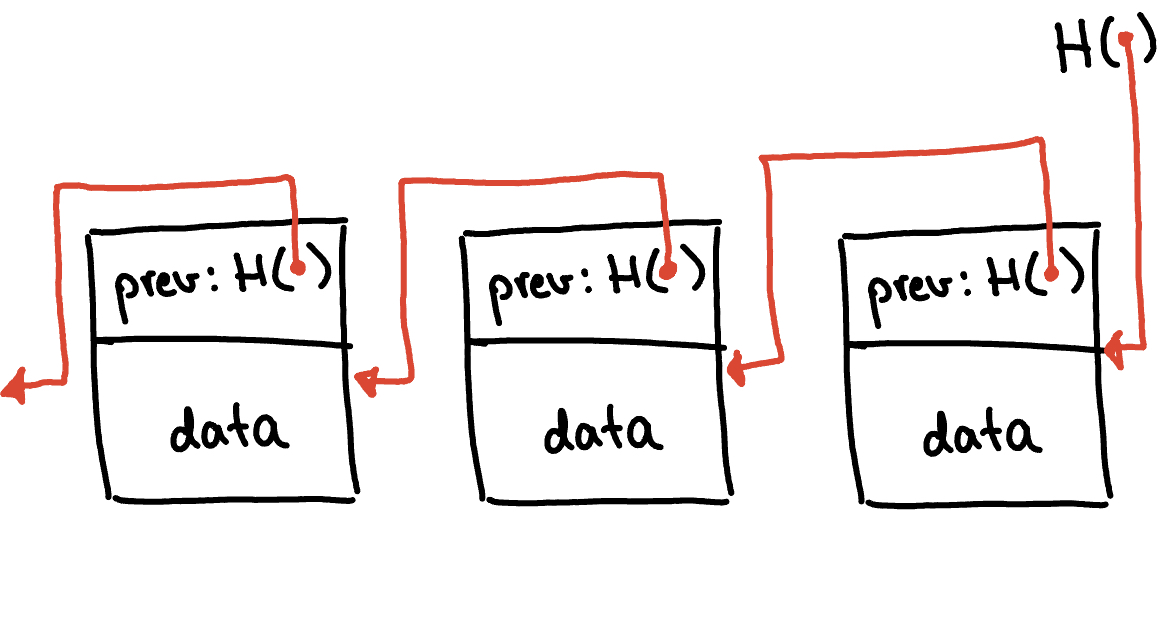 H( )
prev: H( )
data
prev: H( )
data
prev: H( )
data